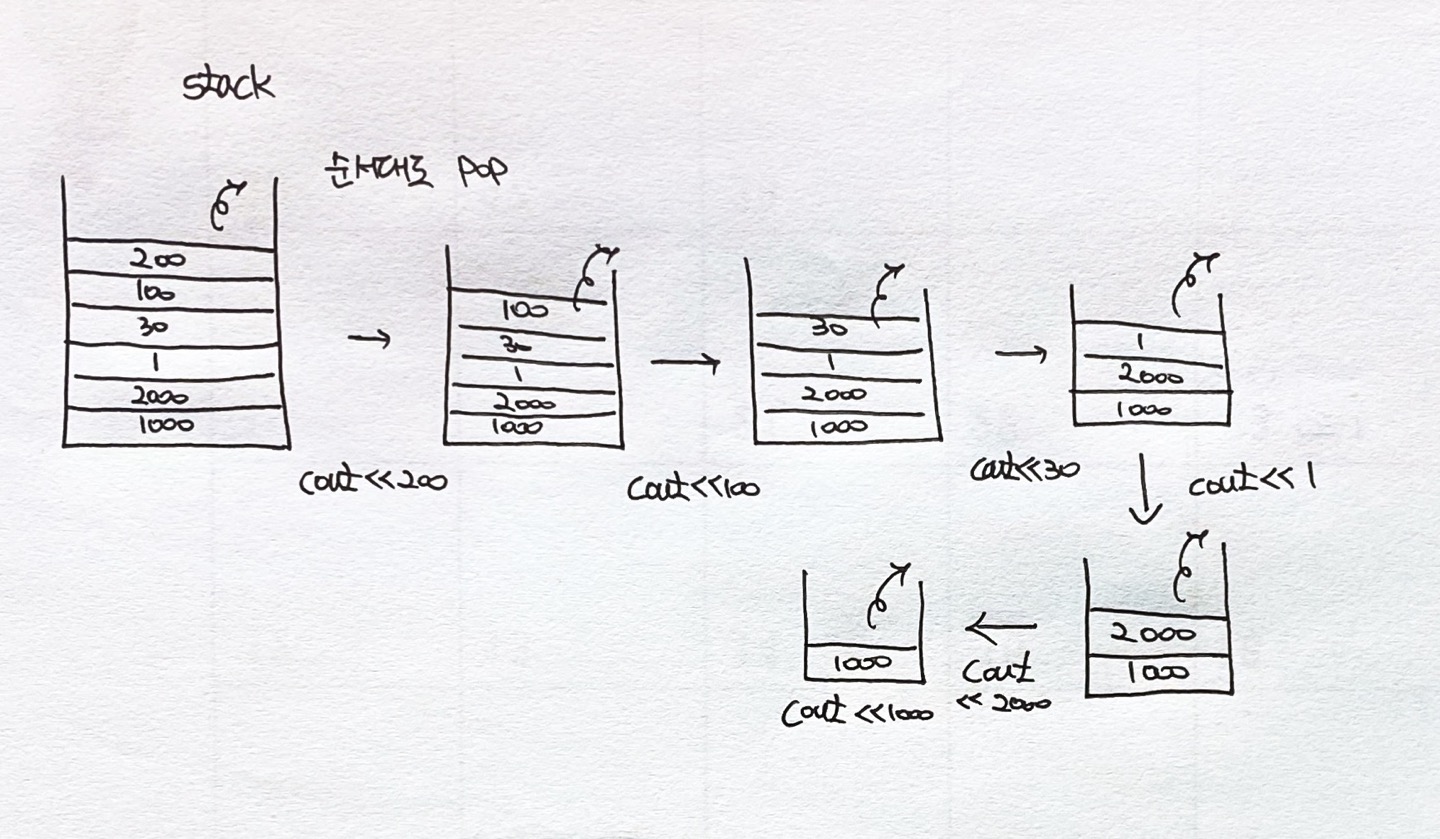 stack
순서대로 pop
200
100
30
1
2000
1000
cout<<200
100
30
1
2000
1000
cout<<100
30
1
2000
1000
cout<<30
1
2000
1000
cout<<1
2000
1000
cout
<<2000
1000
cout<<1000